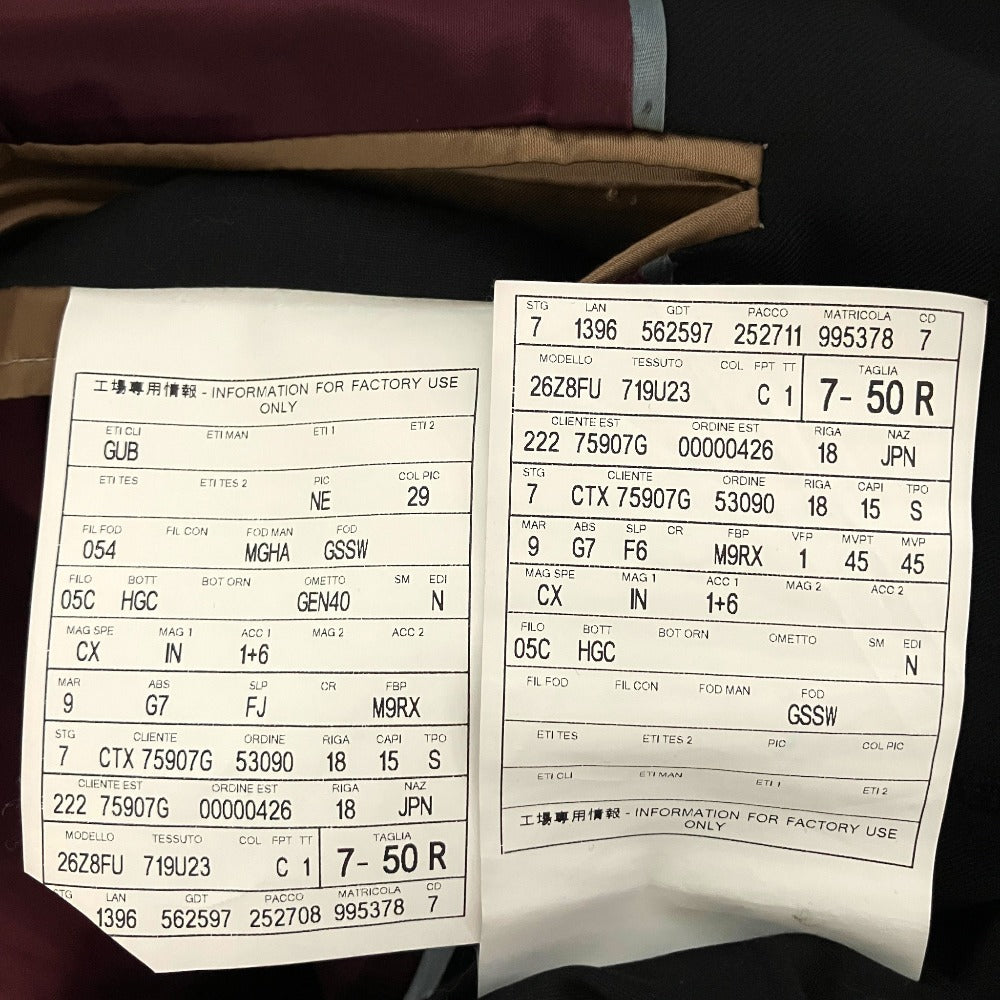 工場專用情報 - INFORMATION FOR FACTORY USE
ONLY
ETI CLI ETI MAN ETI 1 ETI 2
GUB
ETI TES ETI TES 2 PIC COL PIC
NE 29
FIL FOD FIL CON FOD MAN FOD
054 MGHA GSSW
FILO BOTT BOT ORN OMETTO SM EDI
05C HGC GEN40 N
MAG SPE MAG 1 ACC 1 MAG 2 ACC 2
CX IN 1+6
MAR ABS SLP CR FBP
9 G7 FJ M9RX
STG CLIENTE ORDINE RIGA CAPI TPO
7 CTX 75907G 53090 18 15 S
CLIENTE EST ORDINE EST RIGA NAZ
222 75907G 00000426 18 JPN
MODELLO TESSUTO COL FPT TT TAGLIA
26Z8FU 719U23 C 1 7- 50 R
STG LAN GDT PACCO MATRICOLA CD
1396 562597 252708 995378 7
STG LAN GDT PACCO MATRICOLA CD
7 1396 562597 252711 995378 7
MODELLO TESSUTO COL FPT TT TAGLIA
26Z8FU 719U23 C 1 7- 50 R
CLIENTE EST ORDINE EST RIGA NAZ
222 75907G 00000426 18 JPN
STG CLIENTE ORDINE RIGA CAPI TPO
7 CTX 75907G 53090 18 15 S
MAR ABS SLP CR FBP VFP MVPT MVP
9 G7 F6 M9RX 1 45 45
MAG SPE MAG 1 ACC 1 MAG 2 ACC 2
CX IN 1+6
FILO BOTT BOT ORN OMETTO SM EDI
05C HGC N
FIL FOD FIL CON FOD MAN FOD
GSSW
ETI TES ETI TES 2 PIC COL PIC
ETI CLI ETI MAN ETI 1 ETI 2
工場專用情報 - INFORMATION FOR FACTORY USE
ONLY